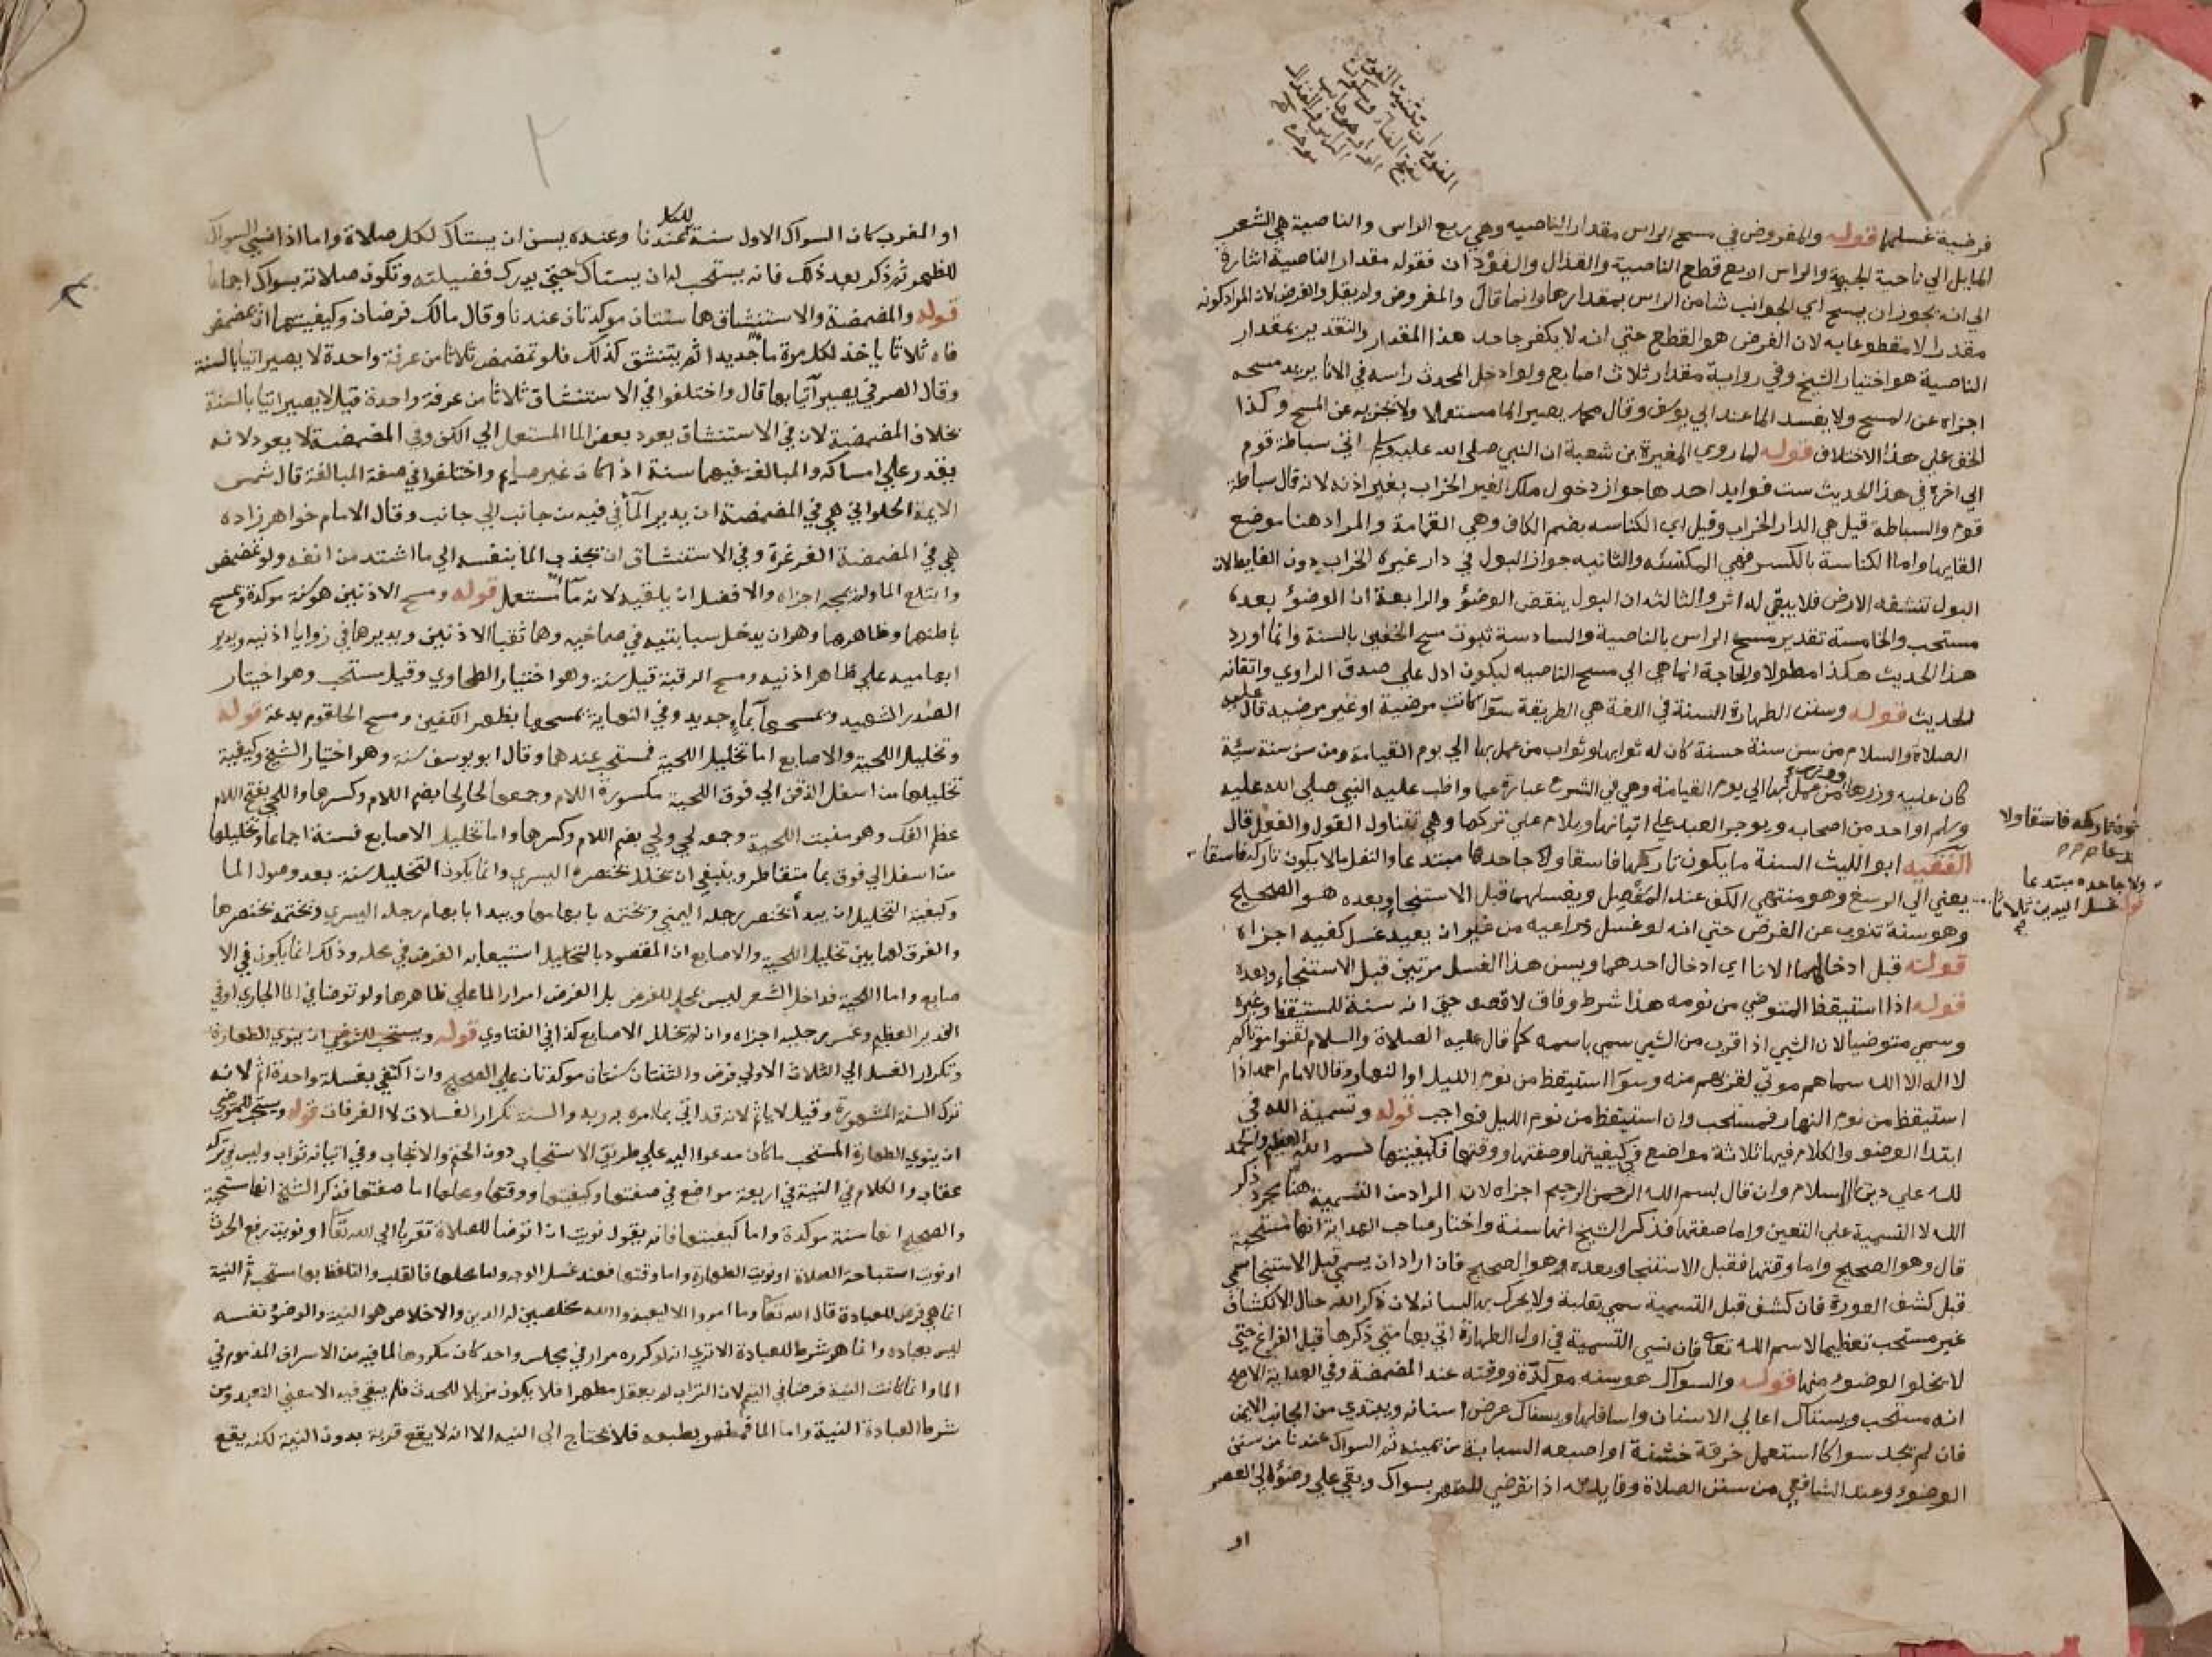 فرضية غسلهما قوله والمفروض في مسح الراس مقدار الناصيه وهي ربع الراس والناصية هي الشعر
المايل الي ناحية الجبهة والراس اربع قطع الناصية والقذال والفودان فقوله مقدار الناصية اشارة
الي انه يجوز ان يمسح اي الجوانب شا من الراس بمقدارها وانما قال والمفروض ولم يقل والفرض لان المراد كونه
مقدرا لا مقطوعا به لان الفرض هو القطع حتي انه لا يكفر جاحد هذا المقدار والتقدير بمقدار
الناصية هو اختيار الشيخ وفي رواية مقدار ثلاث اصابع ولو ادخل المحدث راسه في الانا يريد مسحه
اجزاه عن المسح ولا يفسد الما عند ابي يوسف وقال محمد يصير الما مستعملا ولا يجزيه عن المسح وكذا
الخف علي هذا الاختلاف قوله لما روي المغيرة بن شعبة ان النبي صلي الله عليه وسلم اتي سباطة قوم
الي اخره في هذا الحديث ست فوايد احدها جواز دخول ملك الغير الخراب بغير اذنه لانه قال سباطة
قوم والسباطه قيل هي الدار الخراب وقيل اي الكناسه بضم الكاف وهي القمامة والمراد هنا موضع
القايها واما الكناسة بالكسر فهي المكنسه والثانيه جواز البول في دار غيره الخراب دون الغايط لان
البول تنشفه الارض فلا يبقي له اثر والثالثه ان البول ينقض الوضؤ والرابعة ان الوضؤ بعده
مستحب والخامسة تقدير مسح الراس بالناصية والسادسة ثبوت مسح الخفين بالسنة وانما اورد
هذا الحديث هكذا مطولا والحاجة انما هي الي مسح الناصيه ليكون ادل علي صدق الراوي واتقانه
للحديث قوله وسنن الطهارة السنة في اللغة هي الطريقة سوآ كانت مرضية او غير مرضيه قال عليه
الصلاة والسلام من سن سنة حسنة كان له ثوابها وثواب من عمل بها الي يوم القيامة ومن سن سنة سيئة
كان عليه وزرها ووزر من عمل بها الي يوم القيامة وهي في الشرع عبارة عما واظب عليه النبي صلي الله عليه
وسلم او احد من اصحابه ويوجر العبد علي اتيانها ويلام علي تركها وهي تتناول القول والفعل قال
الفقيه ابو الليث السنة ما يكون تاركها فاسقا ولا جاحدها مبتدعا والنفل ما لا يكون تاركه فاسقا
يعني الي الرسغ وهو منتهي الكف عند المفصل ويغسلهما قبل الاستنجا وبعده هو الصحيح
وهو سنة تنوب عن الفرض حتي انه لو غسل ذراعيه من غير ان يعيد غسل كفيه اجزاه
قوله قبل ادخالهما الانا اي ادخال احدهما ويسن هذا الغسل مرتين قبل الاستنجاء وبعده
قوله اذا استيقظ المتوضي من نومه هذا شرط وفاق لا قصد حتي انه سنة للمستيقظ وغيره
وسمي متوضيا لان الشي اذا قرب من الشي سمي باسمه كما قال عليه الصلاة والسلام لقنوا موتاكم
لا اله الا الله سماهم موتي لقربهم منه وسوآ استيقظ من نوم الليل او النهار وقال الامام احمد اذا
استيقظ من نوم النهار فمستحب وان استيقظ من نوم الليل فواجب قوله وتسمية الله في
ابتدا الوضو والكلام فيها ثلاثة مواضع في كيفيتها وصفتها ووقتها فكيفيتها بسم الله العظيم والحمد
لله علي دين الاسلام وان قال بسم الله الرحمن الرحيم اجزاه لان المراد من التسمية هنا مجرد ذكر
الله لا التسمية علي التعين واما صفتها فذكر الشيخ انها سنة واختار صاحب الهداية انها مستحبة
قال وهو الصحيح واما وقتها فقبل الاستنجا وبعده وهو الصحيح فان اراد ان يسمي قبل الاستنجا سمي
قبل كشف العورة فان كشف قبل التسمية سمي بقلبه ولا يحرك به لسانه لان ذكر الله حال الانكشاف
غير مستحب تعظيما لاسم الله تعالي فان نسي التسمية في اول الطهارة اتي بها متي ذكرها قبل الفراغ حتي
لا يخلو الوضوء منها قوله والسواك هو سنه موكدة ووقته عند المضمضة وفي الهداية الاصح
انه مستحب ويستاك اعالي الاسنان واسافلها ويستاك عرض اسنانه ويبتدي من الجانب الايمن
فان لم يجد سواكا استعمل خرقة خشنة او اصبعه السبابة من يمينه ثم السواك عندنا من سنن
الوضوء وعند الشافعي من سنن الصلاة وفايدته اذا توضي للظهر بسواك وبقي علي وضؤه الي العصر
او
ولا جاحده مبتدعا
قوله غسل اليدين ثلاثا
او المغرب كان السواك الاول سنة للكل عندنا وعنده يسن ان يستاك لكل صلاة واما اذا نسي السواك
للظهر ثم ذكر بعد ذلك فانه يستحب له ان يستاك حتي يدرك فضيلته وتكون صلاته بسواك اجماعا
قوله والمضمضة والاستنشاق هما سنتان موكدتان عندنا وقال مالك فرضان وكيفيتهما ان يمضمض
فاه ثلاثا ياخذ لكل مرة ما جديدا ثم يستنشق كذلك فلو تمضمض ثلاثا من غرفة واحدة لا يصير اتيا بالسنة
وقال الصيرفي يصير آتيا بها قال واختلفوا في الاستنشاق ثلاثا من غرفة واحدة قيل لا يصير اتيا بالسنة
بخلاف المضمضة لان في الاستنشاق يعود بعض الما المستعمل الي الكف وفي المضمضة لا يعود لانه
يقدر علي امساكه والمبالغة فيهما سنة اذا كان غير صايم واختلفوا في صفة المبالغة قال شمس
الايمة الحلواني هي في المضمضة ان يدير المآ في فيه من جانب الي جانب وقال الامام خواهر زاده
هي في المضمضة الغرغرة وفي الاستنشاق ان يجذب الما بنفسه الي ما اشتد من انفه ولو تمضمض
وابتلع الما ولم يمجه اجزاه والافضل ان يلقيه لانه مآ مستعمل قوله ومسح الاذنين هو سنة موكدة ويمسح
باطنهما وظاهرهما وهو ان يدخل سبابتيه في صماخيه وهما ثقبا الاذنين ويديرها في زوايا اذنيه ويدير
ابهاميه علي ظاهر اذنيه ومسح الرقبة قيل سنة وهو اختيار الطحاوي وقيل مستحب وهو اختيار
الصدر الشهيد ويمسحها بماء جديد وفي النهاية يمسحها بظهر الكفين ومسح الحلقوم بدعة قوله
وتخليل اللحية والاصابع اما تخليل اللحية فمستحب عندهما وقال ابو يوسف سنة وهو اختيار الشيخ وكيفية
تخليلها من اسفل الذقن الي فوق اللحية مكسورة اللام وجمعها لحا ولحا بضم اللام وكسرها واللحي بفتح اللام
عظم الفك وهو منبت اللحية وجمعه لحي ولحي بضم اللام وكسرها واما تخليل الاصابع فسنة اجماعا وتخليلها
من اسفل الي فوق بما متقاطر وينبغي ان يخلل بخنصره اليسري وانما يكون التخليل سنة بعد وصول الما
وكيفية التخليل ان يبدأ بخنصر رجله اليمني ويختمه بابهامها ويبدا بابهام رجله اليسري ويختمه بخنصرها
والفرق لهما بين تخليل اللحية والاصابع ان المقصود بالتخليل استيعابه الفرض في محله وذلك انما يكون في الا
صابع واما اللحية فداخل الشعر ليس بمحل للفرض بل الفرض امرار الما علي ظاهرها ولو توضا في الما الجاري او في
الغدير العظيم وغمس رجليه اجزاه وان لم يخلل الاصابع كذا في الفتاوي قوله ويستحب للمتوضي ان ينوي الطهارة
وتكرار الغسل الي الثلاث الاولي فرض والثنتان سنتان موكدتان علي الصحيح وان اكتفي بغسلة واحدة اثم لانه
ترك السنة المشهورة وقيل لا ياثم لانه قد اتي بما امره به ربه والسنة تكرار الغسلات لا الغرفات قوله ويستحب للمتوضي
ان ينوي الطهارة المستحب ما كان مدعوا اليه علي طريق الاستحباب دون الحتم والايجاب وفي اتيانه ثواب وليس في تركه
عقاب والكلام في النية في اربعة مواضع في صفتها وكيفيتها ووقتها ومحلها اما صفتها فذكر الشيخ انها مستحبة
والصحيح انها سنة موكدة واما كيفيتها فانه يقول نويت ان اتوضا للصلاة تقربا الي الله تعالي او نويت رفع الحدث
او نويت استباحة الصلاة او نويت الطهارة واما وقتها فعند غسل الوجه واما محلها فالقلب والتلفظ بها مستحب ثم النية
انما هي فرض للعبادة قال الله تعالي وما امروا الا ليعبدوا الله مخلصين له الدين والاخلاص هو النية والوضوء نفسه
ليس بعباده وانما هو شرط للعبادة الا تري انه لو كرره مرارا في مجلس واحد كان مكروها لما فيه من الاسراف المذموم في
الما وانما كانت النية فرضا في التيمم لان التراب لم يعقل مطهرا فلا يكون مزيلا للحدث فلم يبقي فيه الا معني التعبد ومن
شرط العبادة النية واما الما فمطهر بطبعه فلا يحتاج الي النيه الا انه لا يقع قربة بدون النية لكنه يقع